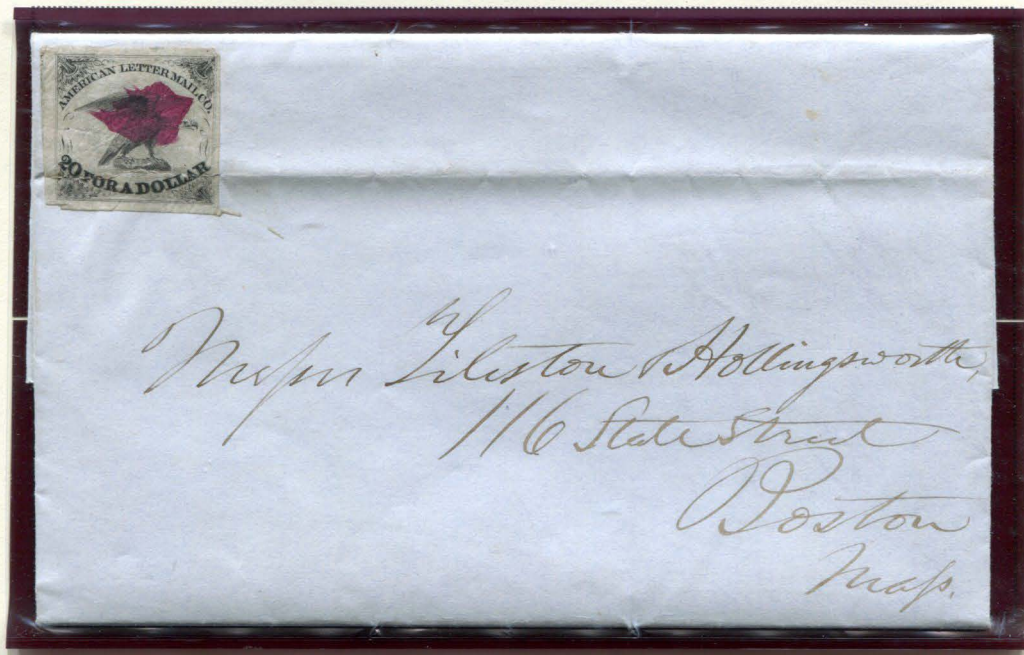 AMERICAN LETTER MAIL CO.
20 FOR A DOLLAR
Messrs Tileston & Hollingsworth,
116 State Street
Boston
Mass.